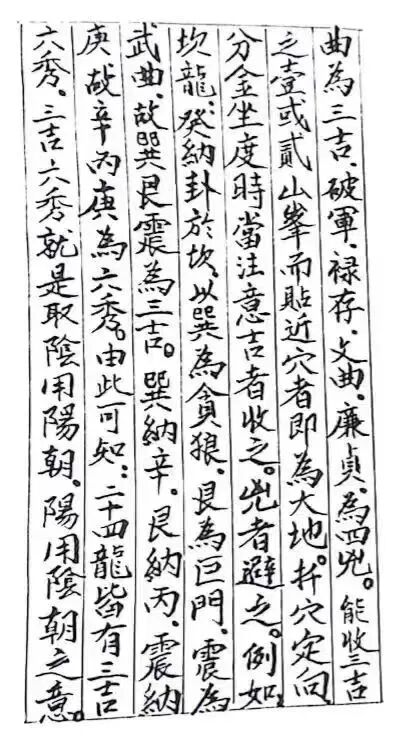 曲為三吉、破軍、祿存、文曲、廉貞、為四兇。能收三吉
之壹或貳山峯而貼近穴者即為大地。扦穴定向
分金坐度時當注意吉者收之。兇者避之。例如：
坎龍、癸納卦於坎、以巽為貪狼、艮為巨門、震為
武曲、故巽艮震為三吉。巽納辛、艮納丙、震納
庚故辛丙庚為六秀。由此可知：二十四龍皆有三吉
六秀。三吉六秀就是取陰用陽朝。陽用陰朝之意。